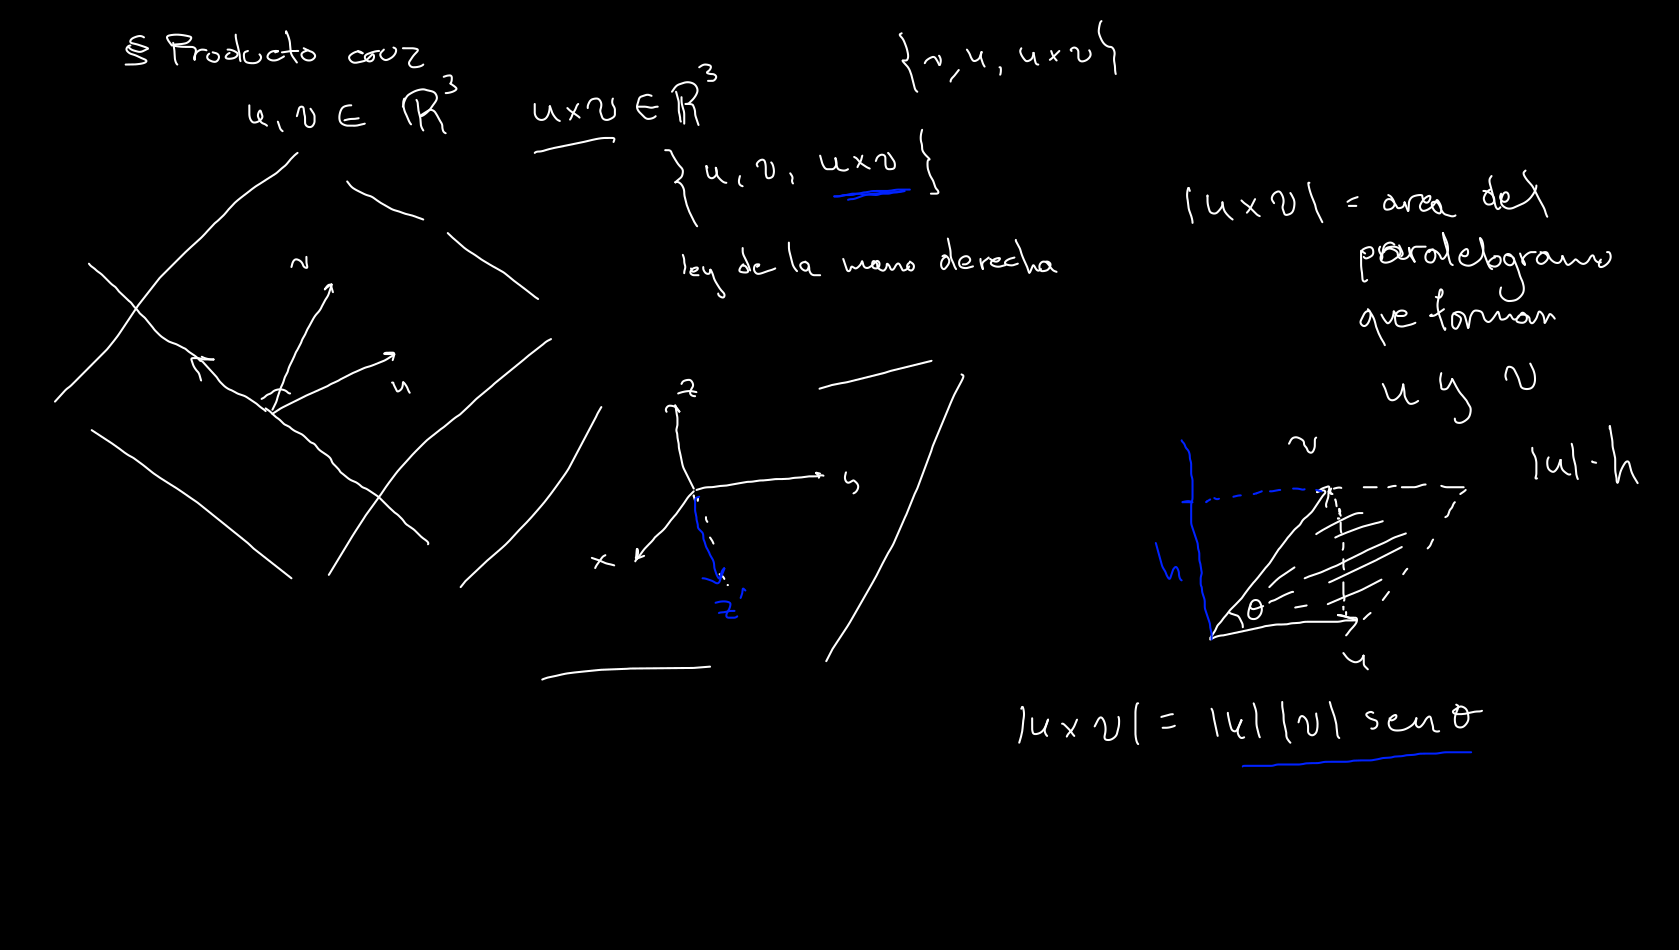 § Producto cruz
u, v ∈ ℝ³ u×v ∈ ℝ³
{v, u, u×v}
{u, v, u×v}
ley de la mano derecha
v
u
z
y
x
z'
|u×v| = area del
paralelogramo
que forman
u y v
v
|u|·h
h
θ
u
|u×v| = |u| |v| sen θ